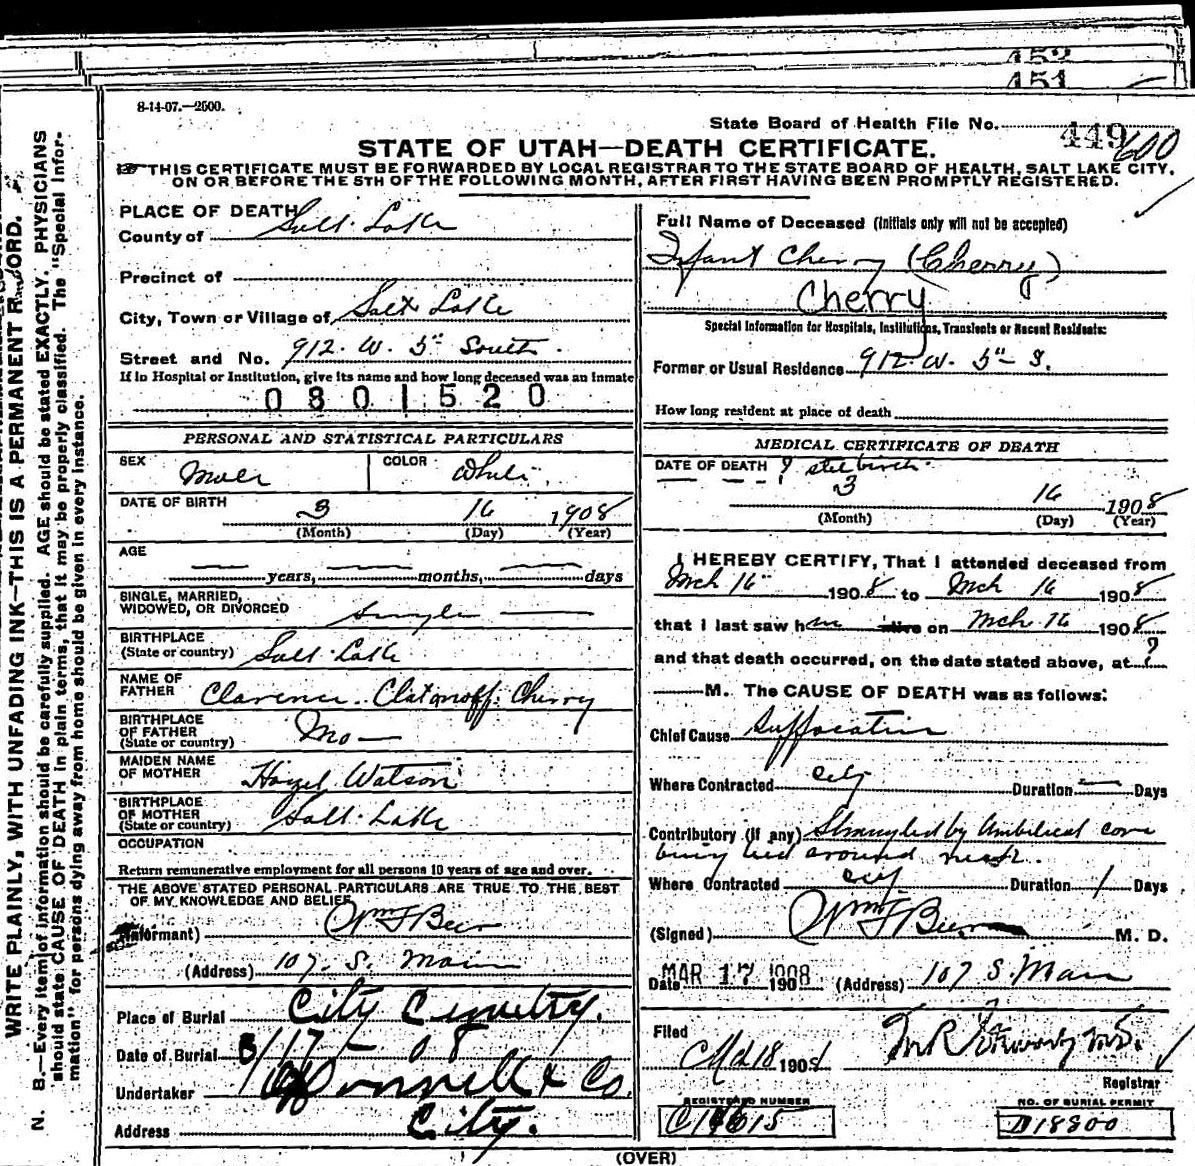 452
451
8-14-07.—2500.
State Board of Health File No. 449 600
STATE OF UTAH—DEATH CERTIFICATE.
THIS CERTIFICATE MUST BE FORWARDED BY LOCAL REGISTRAR TO THE STATE BOARD OF HEALTH, SALT LAKE CITY,
ON OR BEFORE THE 5TH OF THE FOLLOWING MONTH, AFTER FIRST HAVING BEEN PROMPTLY REGISTERED.
WRITE PLAINLY, WITH UNFADING INK—THIS IS A PERMANENT RECORD.
N. B.—Every item of information should be carefully supplied. AGE should be stated EXACTLY. PHYSICIANS
should state CAUSE OF DEATH in plain terms, that it may be properly classified. The "Special Infor-
mation" for persons dying away from home should be given in every instance.
PLACE OF DEATH
County of Salt Lake
Precinct of
City, Town or Village of Salt Lake
Street and No. 912 W. 5" South
If in Hospital or Institution, give its name and how long deceased was an Inmate
0801520
PERSONAL AND STATISTICAL PARTICULARS
SEX Male COLOR White
DATE OF BIRTH
3 16 1908
(Month) (Day) (Year)
AGE
— years, — months, — days
SINGLE, MARRIED,
WIDOWED, OR DIVORCED Single
BIRTHPLACE
(State or country) Salt Lake
NAME OF
FATHER Clarence Cherry
BIRTHPLACE
OF FATHER
(State or country) Mo—
MAIDEN NAME
OF MOTHER Hazel Watson
BIRTHPLACE
OF MOTHER
(State or country) Salt Lake
OCCUPATION
Return remunerative employment for all persons 10 years of age and over.
THE ABOVE STATED PERSONAL PARTICULARS ARE TRUE TO THE BEST
OF MY KNOWLEDGE AND BELIEF
(Informant) Wm F Beer
(Address) 107. S. Main
Place of Burial City Cemetry.
Date of Burial 3/17 – 08
Undertaker O'Donnell & Co.
Address City.
Full Name of Deceased (initials only will not be accepted)
Infant Cherry (Cherry)
Cherry
Special Information for Hospitals, Institutions, Transients or Recent Residents:
Former or Usual Residence 912 W. 5" S.
How long resident at place of death
MEDICAL CERTIFICATE OF DEATH
DATE OF DEATH ? still birth.
3 16 1908
(Month) (Day) (Year)
I HEREBY CERTIFY, That I attended deceased from
Mch 16" 1908 to Mch 16 1908
that I last saw him alive on Mch. 16 1908
and that death occurred, on the date stated above, at ?
—M. The CAUSE OF DEATH was as follows:
Chief Cause Suffocation
Where Contracted City Duration — Days
Contributory (if any) Strangled by Umbilical cord
being tied around neck.
Where Contracted City Duration 1 Days
(Signed) Wm F Beer M. D.
Date MAR 17 1908 (Address) 107 S. Main
Filed
Mch 18 1908
Registrar
REGISTERED NUMBER
NO. OF BURIAL PERMIT
D18800
(OVER)